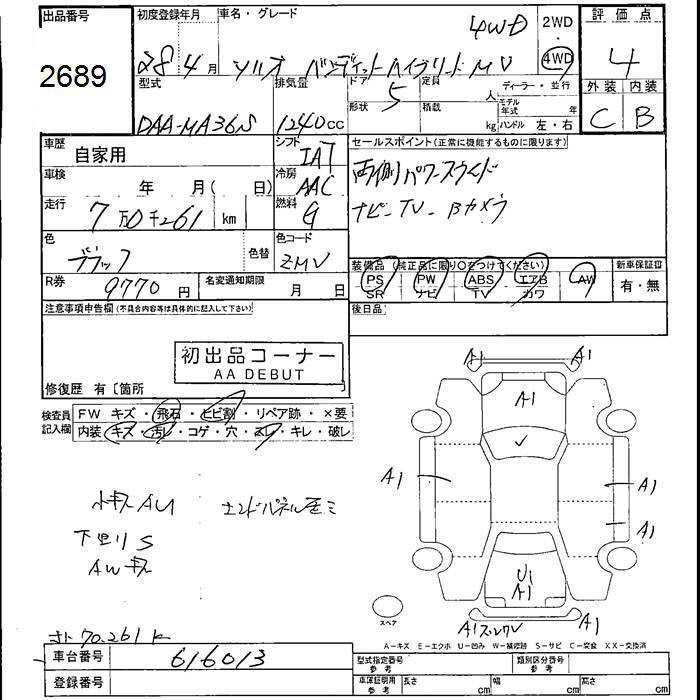 出品番号 初度登録年月 車名・グレード 4WD 2WD ・ 4WD 評価点
2689 28年4月 ソリオ バンディットハイブリッド MV 4
型式 排気量 ドア 5 定員 人 ディーラー・並行 外装 内装
DAA-MA36S 1240cc 形状 積載 kg モデル年式 年 ハンドル 左・右 C B
車歴 自家用 シフト IAT セールスポイント(正常に機能するものに限ります)
車検 年 月(日) 冷房 AAC 両側パワースライド
走行 7万0千261 km 燃料 G ナビ-TV-Bカメラ
色 ブラック 色替 色コード ZMV
装備品(純正品に限り〇をつけてください) 新車保証書
PS PW ABS エアB AW 有・無
SR ナビ TV カワ
R券 9770円 名変通知期限 月 日
注意事項申告欄(不具合内容等は具体的に記入して下さい) 後日品
初出品コーナー
AA DEBUT
修復歴 有〔箇所
検査員記入欄 FW キズ・飛石・ヒビ割・リペア跡・×要
内装・キズ・汚れ・コゲ・穴・スレ・キレ・破レ
A1 A1
A1
✓
A1 A1
A1
U1
A1
小キズAU エンドパネル歪ミ
下廻りS
AWキズ
スペア
A1スレWU A1
70.261k
A-キズ E-エクボ U-凹み W-補修跡 S-サビ C-腐食 XX-交換済
車台番号 616013 型式指定番号 参考 類別区分番号 参考
登録番号 車庫証明用 参考 長さ cm 幅 cm 高さ cm